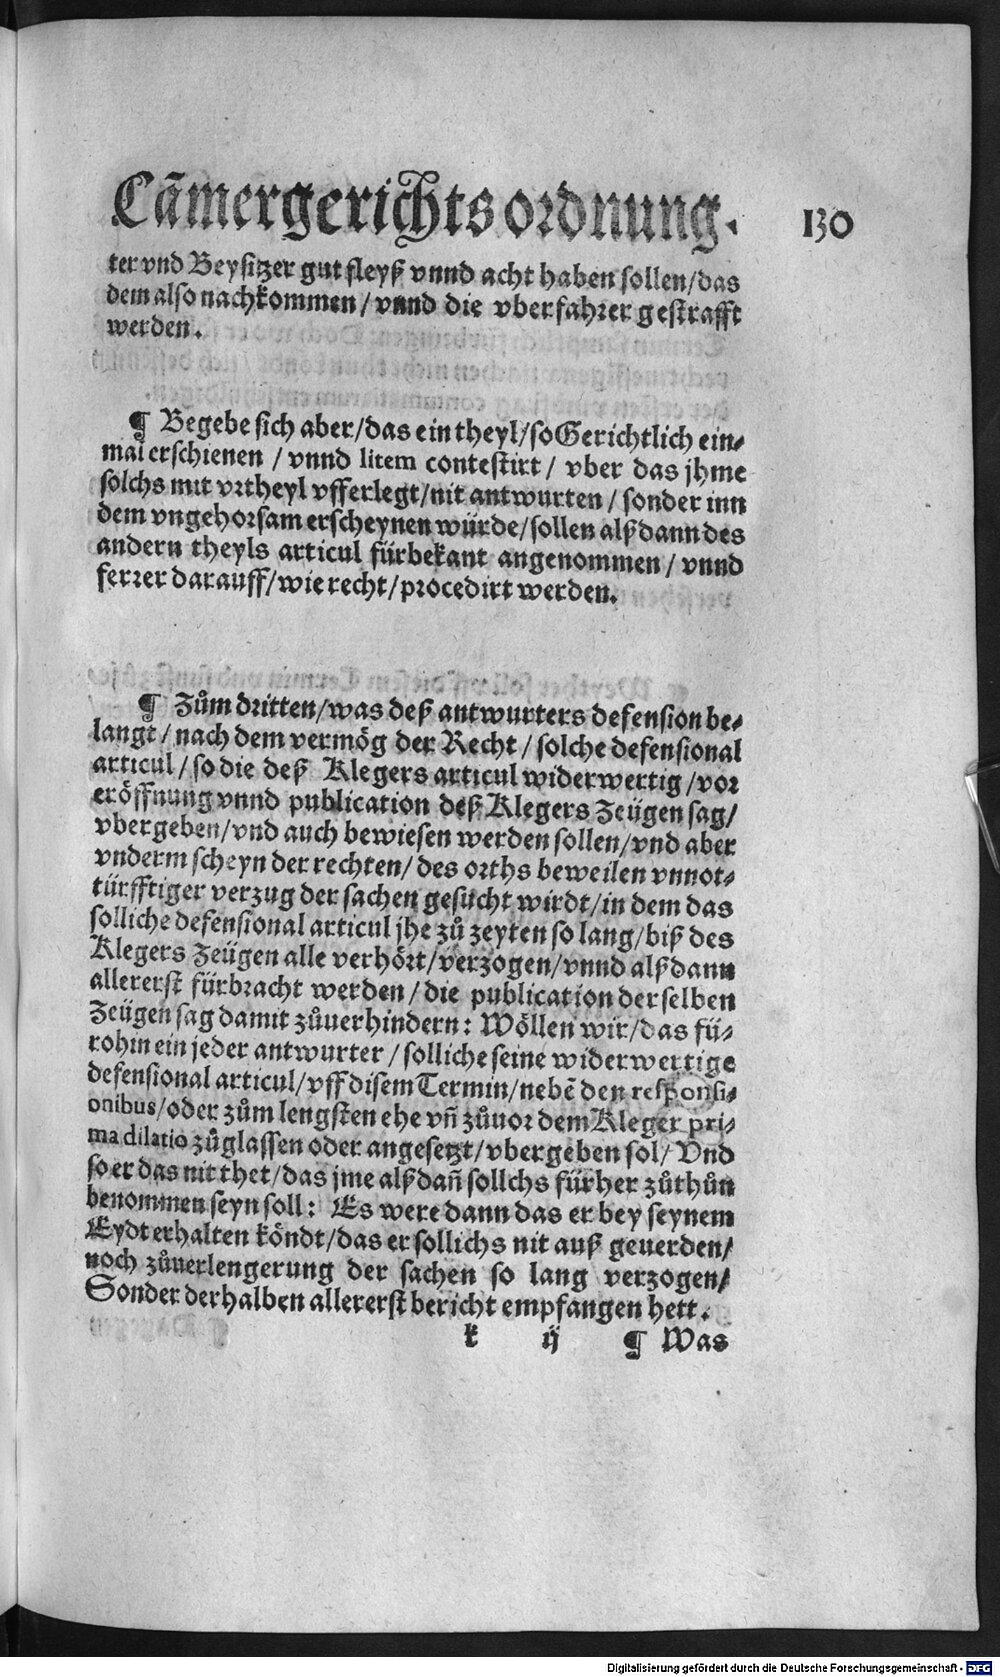 Cãmergerichts ordnung. 130
ter vnd Beysitzer gut fleyß vnnd acht haben sollen/das
dem also nachkommen/vnnd die vberfahrer gestrafft
werden.
¶ Begebe sich aber/das ein theyl/so Gerichtlich ein-
mal erschienen / vnnd litem contestirt / vber das jhme
solchs mit vrtheyl vfferlegt/nit antwurten / sonder inn
dem vngehorsam erscheynen würde/sollen alßdann des
andern theyls articul fürbekant angenommen / vnnd
ferrer darauff/wie recht/procedirt werden.
¶ Zům dritten/was deß antwurters defension be-
langt/nach dem vermög der Recht / solche defensional
articul / so die deß Klegers articul widerwertig/vor
eröffnung vnnd publication deß Klegers Zeügen sag/
vbergeben/vnd auch bewiesen werden sollen/vnd aber
vnderm scheyn der rechten/des orths beweilen vnnot-
türfftiger verzug der sachen gesucht wirdt/in dem das
solliche defensional articul jhe zů zeyten so lang/biß des
Klegers Zeügen alle verhört/verzogen/vnnd alßdann
allererst fürbracht werden/die publication derselben
Zeügen sag damit zůuerhindern: Wöllen wir/das fü-
rohin ein jeder antwurter / solliche seine widerwertige
defensional articul/vff disem Termin/nebẽ den responsi-
onibus/oder zům lengsten ehe vñ zůuor dem Kleger pri-
ma dilatio zůglassen oder angesetzt/vbergeben sol/ Vnd
so er das nit thet/das jme alßdañ sollchs fürher zůthůn
benommen seyn soll: Es were dann das er bey seynem
Eydt erhalten köndt/das er sollichs nit auß geuerden/
noch zůuerlengerung der sachen so lang verzogen/
Sonder derhalben allererst bericht empfangen hett.
k ij ¶ Was
Digitalisierung gefördert durch die Deutsche Forschungsgemeinschaft - DFG